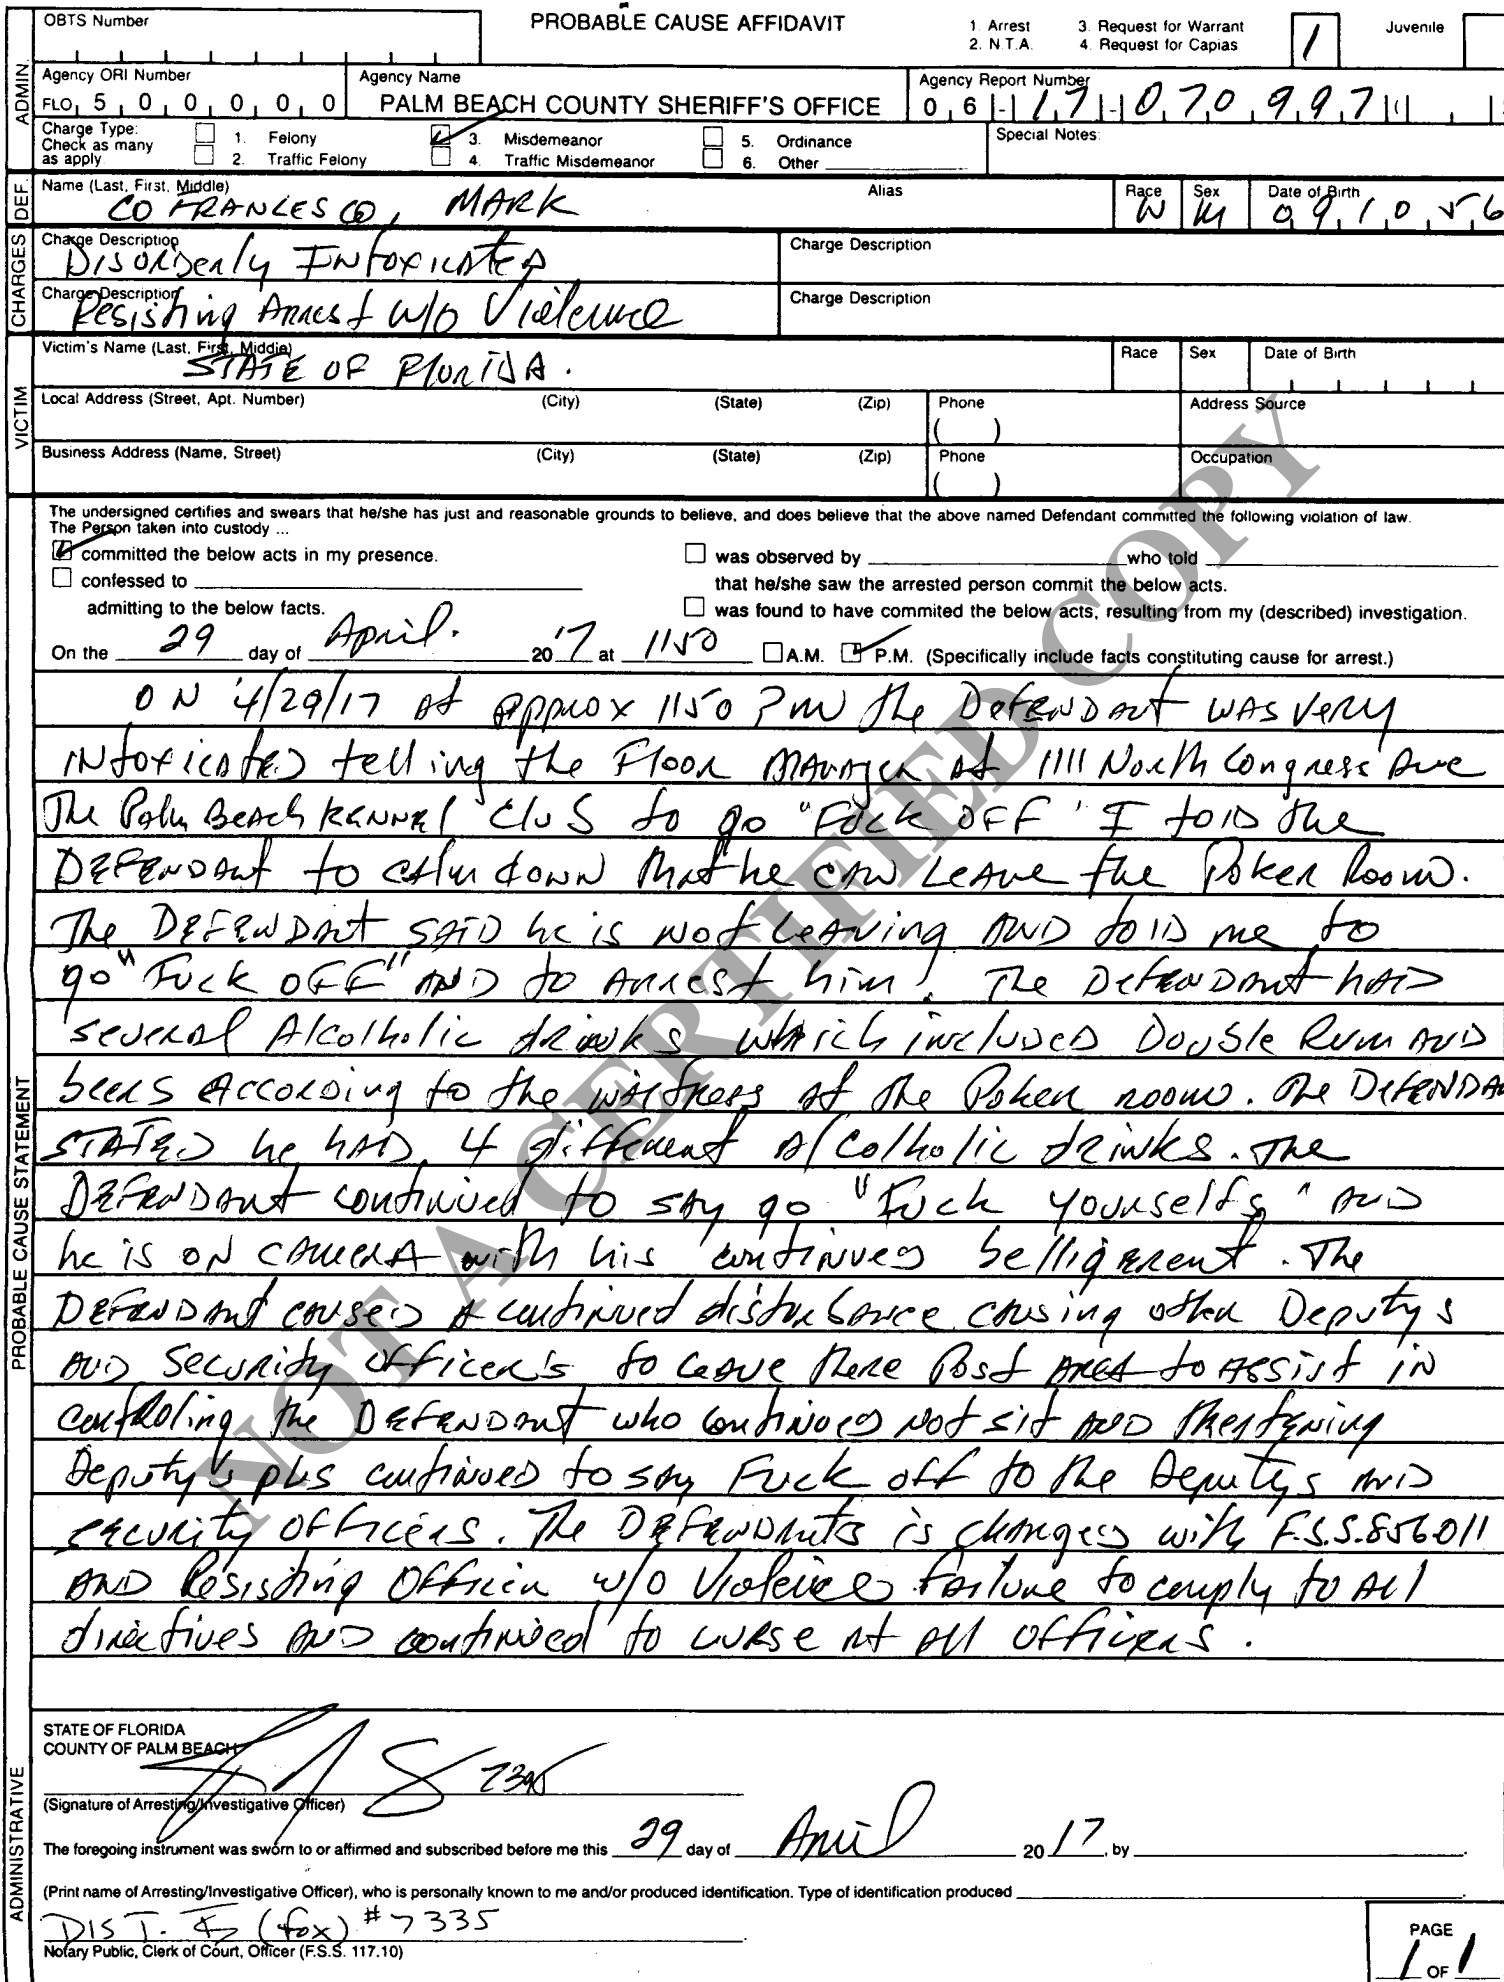 OBTS Number
PROBABLE CAUSE AFFIDAVIT
1. Arrest 3. Request for Warrant
2. N.T.A. 4. Request for Capias
1
Juvenile
ADMIN.
Agency ORI Number
FLO 5 0 0 0 0 0 0
Agency Name
PALM BEACH COUNTY SHERIFF'S OFFICE
Agency Report Number
0 6 - 1 7 - 0 7 0 9 9 7
Charge Type:
Check as many
as apply.
1. Felony
2. Traffic Felony
3. Misdemeanor
4. Traffic Misdemeanor
5. Ordinance
6. Other
Special Notes:
DEF.
Name (Last, First, Middle)
COFRANCESCO, MARK
Alias
Race
W
Sex
M
Date of Birth
0 9 1 0 5 6
CHARGES
Charge Description
Disorderly Intoxicated
Charge Description
Charge Description
Resisting Arrest w/o Violence
Charge Description
VICTIM
Victim's Name (Last, First, Middle)
STATE OF FlORIDA.
Race
Sex
Date of Birth
Local Address (Street, Apt. Number) (City) (State) (Zip)
Phone
( )
Address Source
Business Address (Name, Street) (City) (State) (Zip)
Phone
( )
Occupation
PROBABLE CAUSE STATEMENT
The undersigned certifies and swears that he/she has just and reasonable grounds to believe, and does believe that the above named Defendant committed the following violation of law.
The Person taken into custody ...
committed the below acts in my presence.
confessed to
admitting to the below facts.
was observed by who told
that he/she saw the arrested person commit the below acts.
was found to have commited the below acts, resulting from my (described) investigation.
On the 29 day of April. 20 17 at 1150 A.M. P.M. (Specifically include facts constituting cause for arrest.)
ON 4/29/17 at approx 1150 PM the Defendant was very
intoxicated telling the Floor Manager at 1111 North Congress Ave
The Palm Beach Kennel Club to go "Fuck OFF" I told the
Defendant to calm down that he can leave the Poker Room.
The Defendant said he is not leaving and told me to
go "Fuck OFF" and to arrest him! The Defendant had
several Alcolholic drinks which included Double Rum and
beers according to the witness at the Poker room. The Defenda
stated he had 4 different Alcolholic drinks. The
Defendant continued to say go "Fuck yourselfs" and
he is on camera with his continued belligerent. The
Defendant caused a continued disturbance causing other Deputys
and Security officer's to leave there Post area to assist in
controling the Defendant who continued not sit and thretening
Deputy's plus continued to say Fuck off to the Deputys and
security officers. The Defendants is charged with F.S.S.856011
and Resisting Officer w/o Violence failure to comply to all
directives and continued to curse at all officers.
NOT A CERTIFIED COPY
ADMINISTRATIVE
STATE OF FLORIDA
COUNTY OF PALM BEACH
(Signature of Arresting/Investigative Officer)
The foregoing instrument was sworn to or affirmed and subscribed before me this 29 day of April 20 17, by
(Print name of Arresting/Investigative Officer), who is personally known to me and/or produced identification. Type of identification produced
(fox) #7335
Notary Public, Clerk of Court, Officer (F.S.S. 117.10)
PAGE
1 OF 1